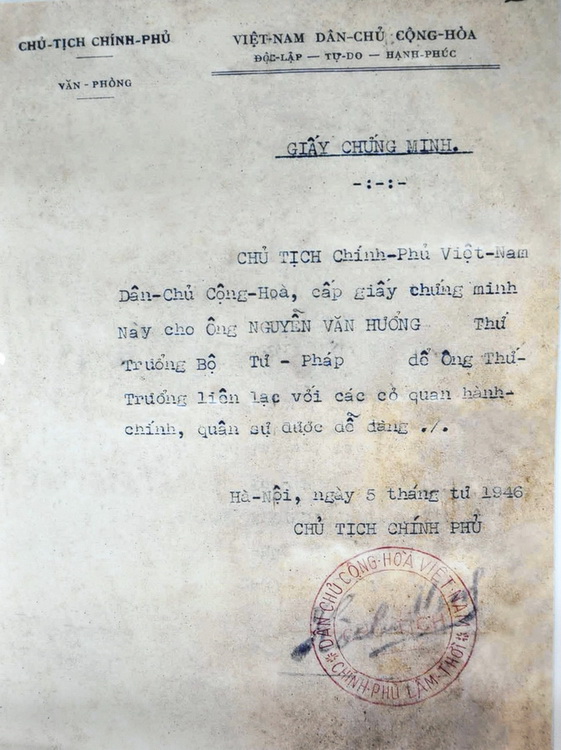 CHỦ-TỊCH CHÍNH-PHỦ
VĂN-PHÒNG
VIỆT-NAM DÂN-CHỦ CỘNG-HÒA
ĐỘC-LẬP — TỰ-DO — HẠNH-PHÚC
GIẤY CHỨNG MINH.
-:-:-
CHỦ TỊCH Chính-Phủ Việt-Nam
Dân-Chủ Cộng-Hoà, cấp giấy chứng minh
Này cho Ông NGUYỄN VĂN HƯỞNG Thứ
Trưởng Bộ Tư - Pháp để Ông Thứ-
Trưởng liên lạc với các cơ quan hành-
chính, quân sự được dễ dàng ./.
Hà-Nội, ngày 5 tháng tư 1946
CHỦ TỊCH CHÍNH PHỦ
DÂN-CHỦ CỘNG-HOÀ VIỆT-NAM
CHÍNH-PHỦ LÂM-THỜI